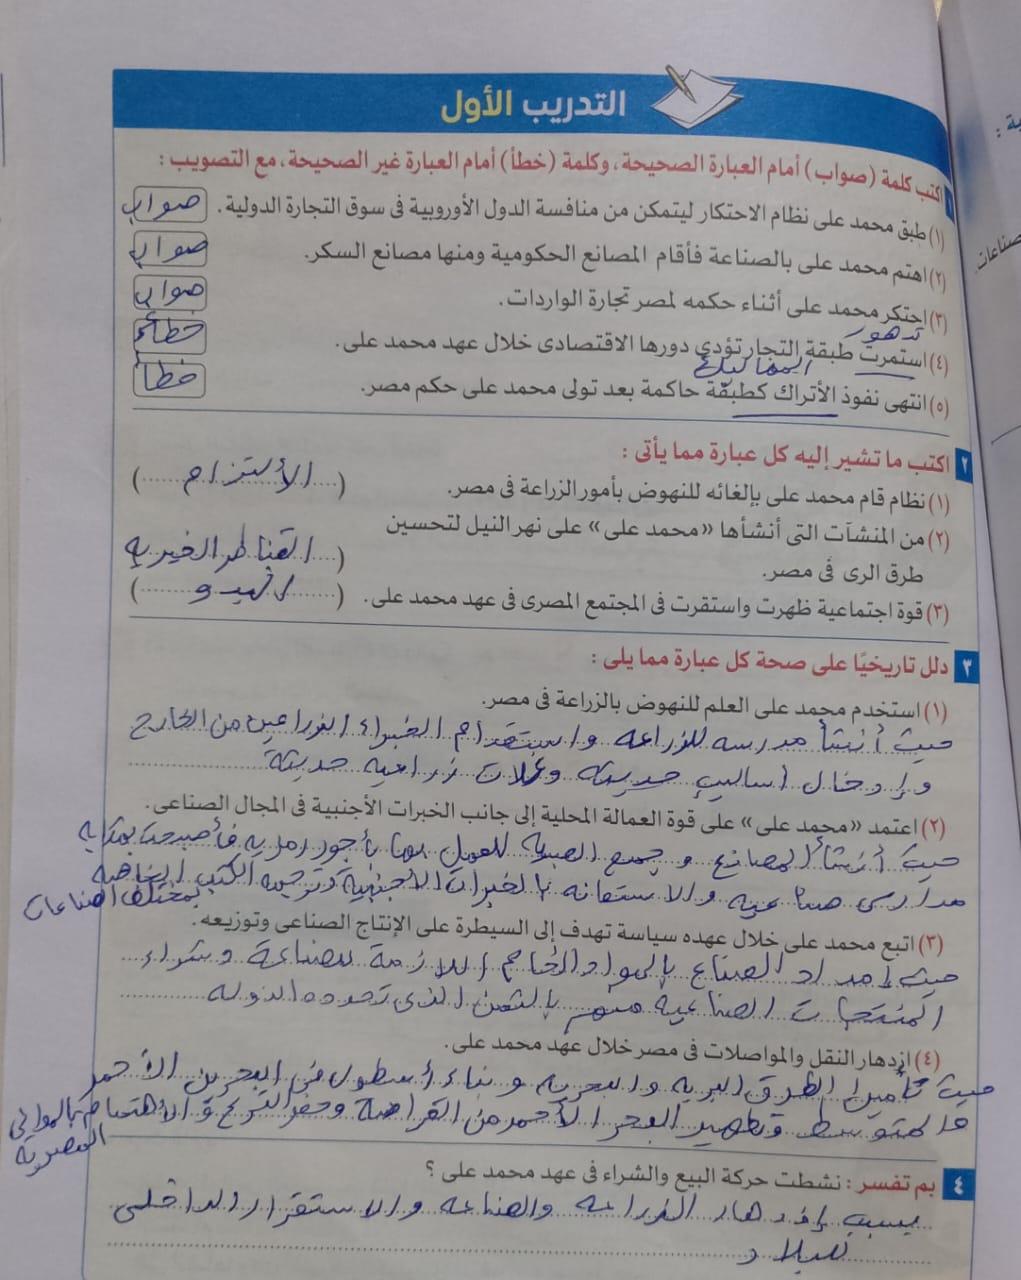 التدريب الأول
١ اكتب كلمة (صواب) أمام العبارة الصحيحة، وكلمة (خطأ) أمام العبارة غير الصحيحة، مع التصويب:
(١) طبق محمد على نظام الاحتكار ليتمكن من منافسة الدول الأوروبية فى سوق التجارة الدولية. صواب
(٢) اهتم محمد على بالصناعة فأقام المصانع الحكومية ومنها مصانع السكر. صواب
(٣) احتكر محمد على أثناء حكمه لمصر تجارة الواردات. صواب
تدهور
(٤) استمرت طبقة التجار تؤدى دورها الاقتصادى خلال عهد محمد على. خطأ
المماليك
(٥) انتهى نفوذ الأتراك كطبقة حاكمة بعد تولى محمد على حكم مصر. خطأ
٢ اكتب ما تشير إليه كل عبارة مما يأتى:
(١) نظام قام محمد على بإلغائه للنهوض بأمور الزراعة فى مصر. (الألتزام)
(٢) من المنشآت التى أنشأها «محمد على» على نهر النيل لتحسين
طرق الرى فى مصر. (القناطر الخيريه)
(٣) قوة اجتماعية ظهرت واستقرت فى المجتمع المصرى فى عهد محمد على. (البدو)
٣ دلل تاريخيًا على صحة كل عبارة مما يلى:
(١) استخدم محمد على العلم للنهوض بالزراعة فى مصر.
حيث أنشأ مدرسه للزراعه واستقدام الخبراء الزراعين من الخارج
وإدخال أساليب حديثه وغلات زراعيه حديثة
(٢) اعتمد «محمد على» على قوة العمالة المحلية إلى جانب الخبرات الأجنبية فى المجال الصناعى.
حيث أنشأ المصانع وجمع الصبية للعمل بها بأجور رمزيه فأصبحت بمثابه
مدارس صناعيه والاستعانه بالخبرات الأجنبية وترجمه الكتب الخاصه
بمختلف الصناعات
(٣) اتبع محمد على خلال عهده سياسة تهدف إلى السيطرة على الإنتاج الصناعى وتوزيعه.
حيث إمداد الصناع بالمواد الخام اللازمة للصناعة وشراء
المنتجات الصناعيه منهم بالثمن الذى تحدده الدوله
(٤) ازدهار النقل والمواصلات فى مصر خلال عهد محمد على.
حيث تأمين الطرق البريه والبحريه وبناء أسطول فى البحرين الأحمر
والمتوسط وتطهير البحر الأحمر من القراصنة وحفر الترع والأهتمام بالموانى
المصريه
٤ بم تفسر: نشطت حركة البيع والشراء فى عهد محمد على؟
بسبب إزدهار الزراعه والصناعه والاستقرار الداخلى
للبلاد
ية:
صناعات.